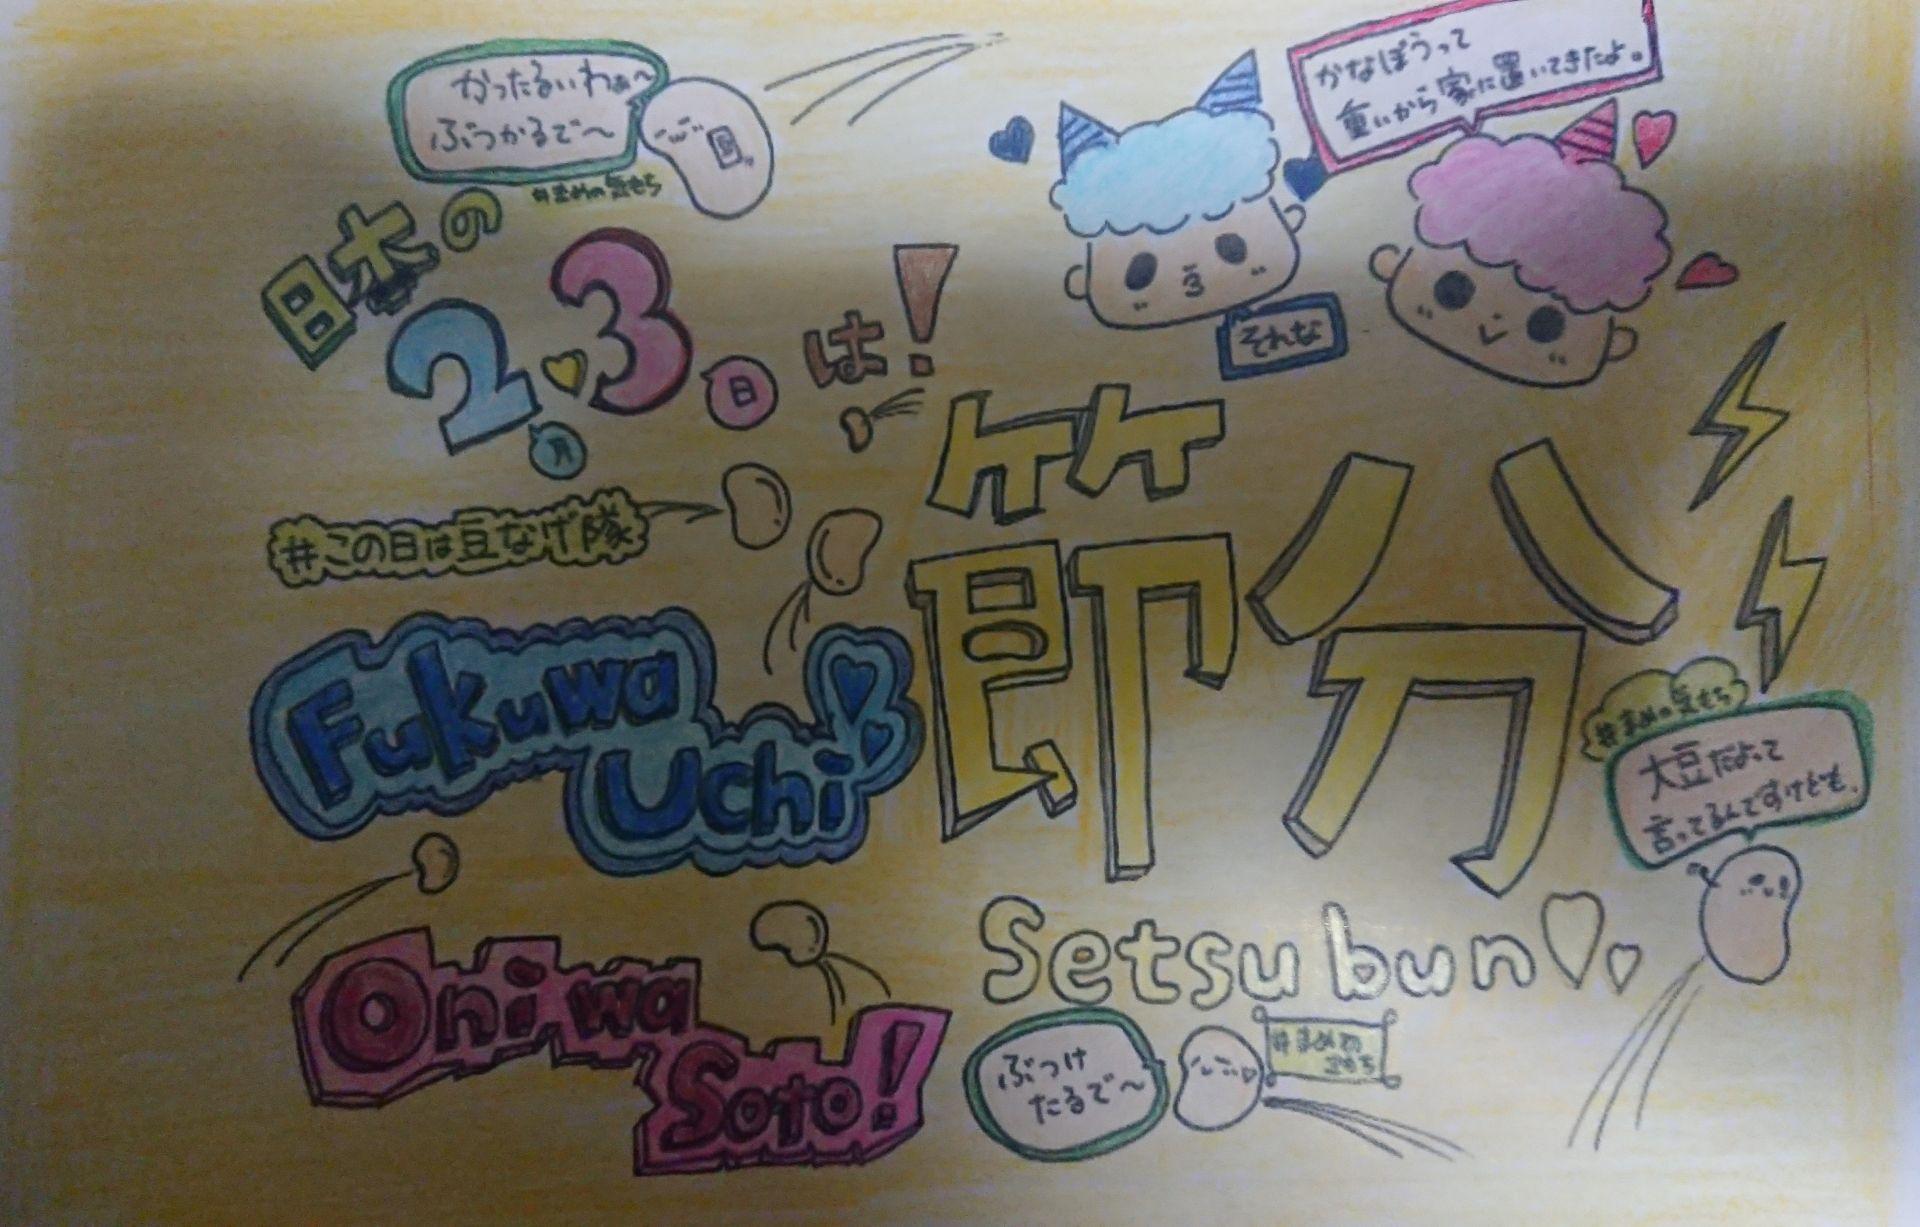 かったるいわぁ〜
ぶつかるで〜
#まめの気もち
日本の
2月3日は!
#この日は豆なげ隊
Fukuwa
Uchi
Oniwa
Soto!
かなぼうって
重いから家に置いてきたよ。
それな
節分
Setsubun
#まめの気もち
大豆だよって
言ってるんですけども。
ぶつけ
たるで〜
#まめの
きもち